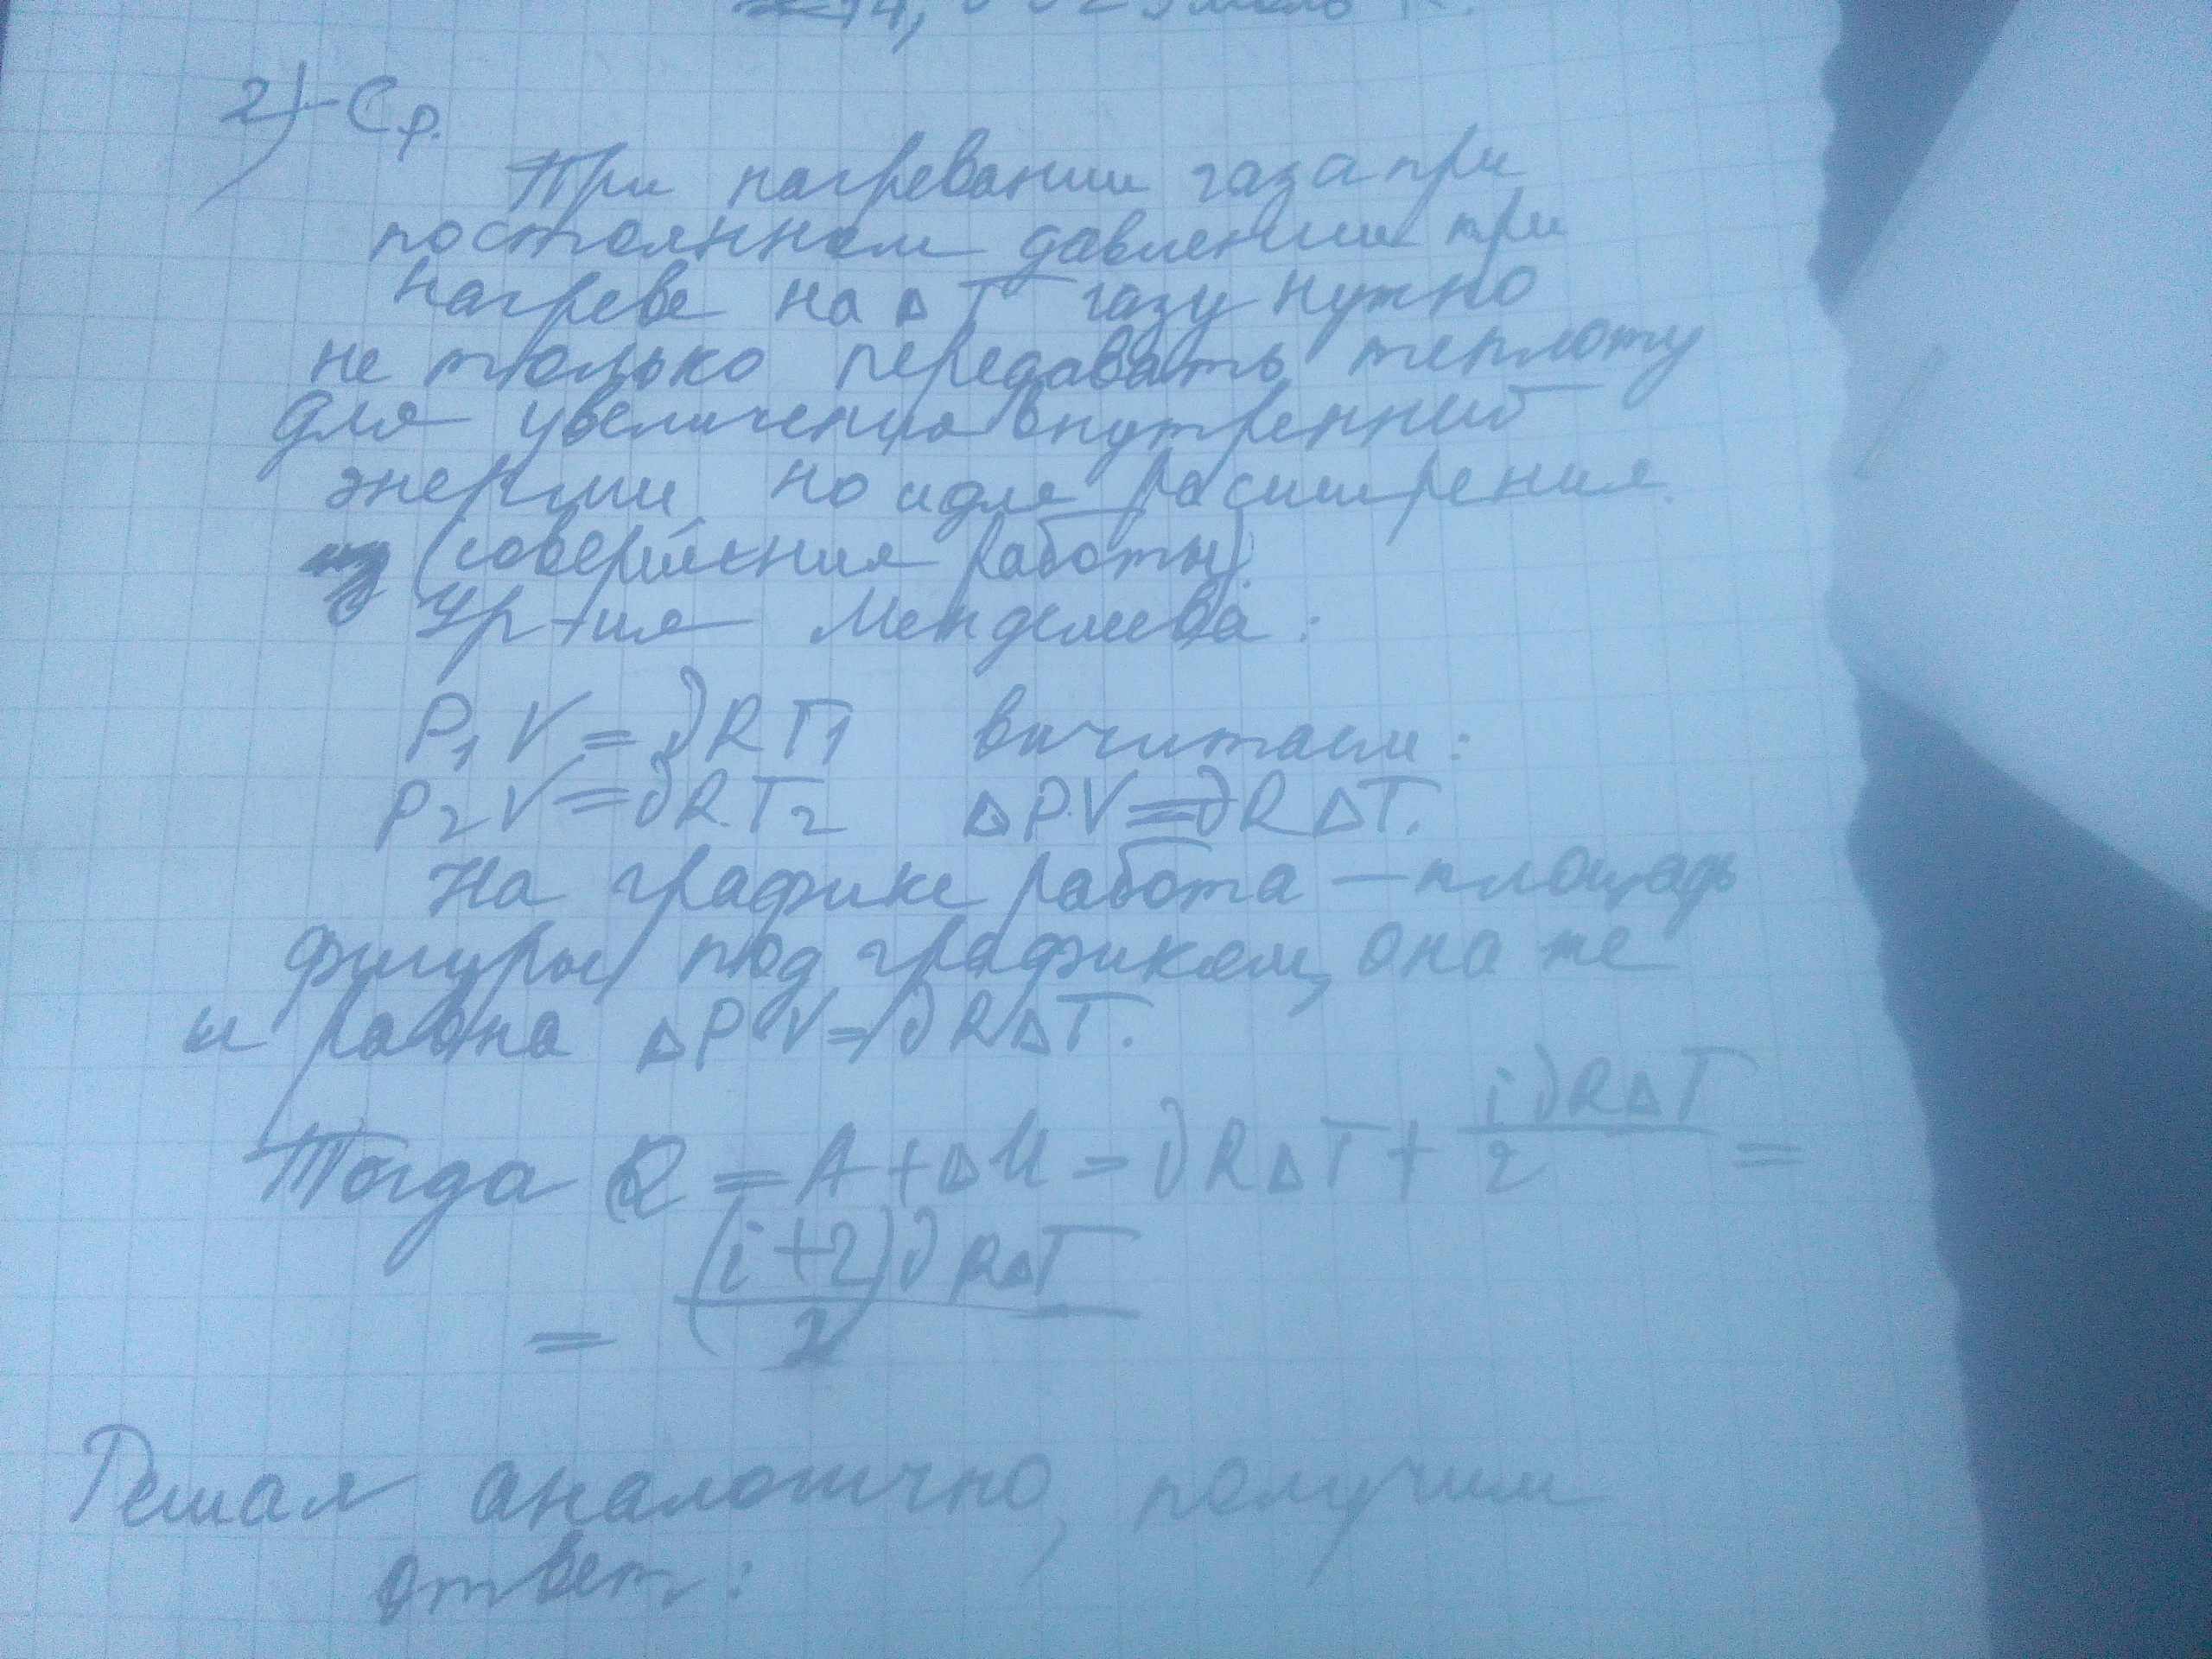 2) Cp.
При нагревании газа при
постоянном давлении при
нагреве на ΔT газу нужно
не только передавать теплоту
для увеличения внутренней
энергии, но и для расширения
(совершения работы).
Ур-ия Менделеева:
P₁V=νRT₁ вычитаем:
P₂V=νRT₂ ΔP·V=νRΔT.
На графике работа — площадь
фигуры под графиком, она же
и равна ΔP·V=νRΔT.
Тогда Q = A+ΔU = νRΔT + iνRΔT/2 =
= (i+2)νRΔT/2
Решая аналогично, получим
ответ: